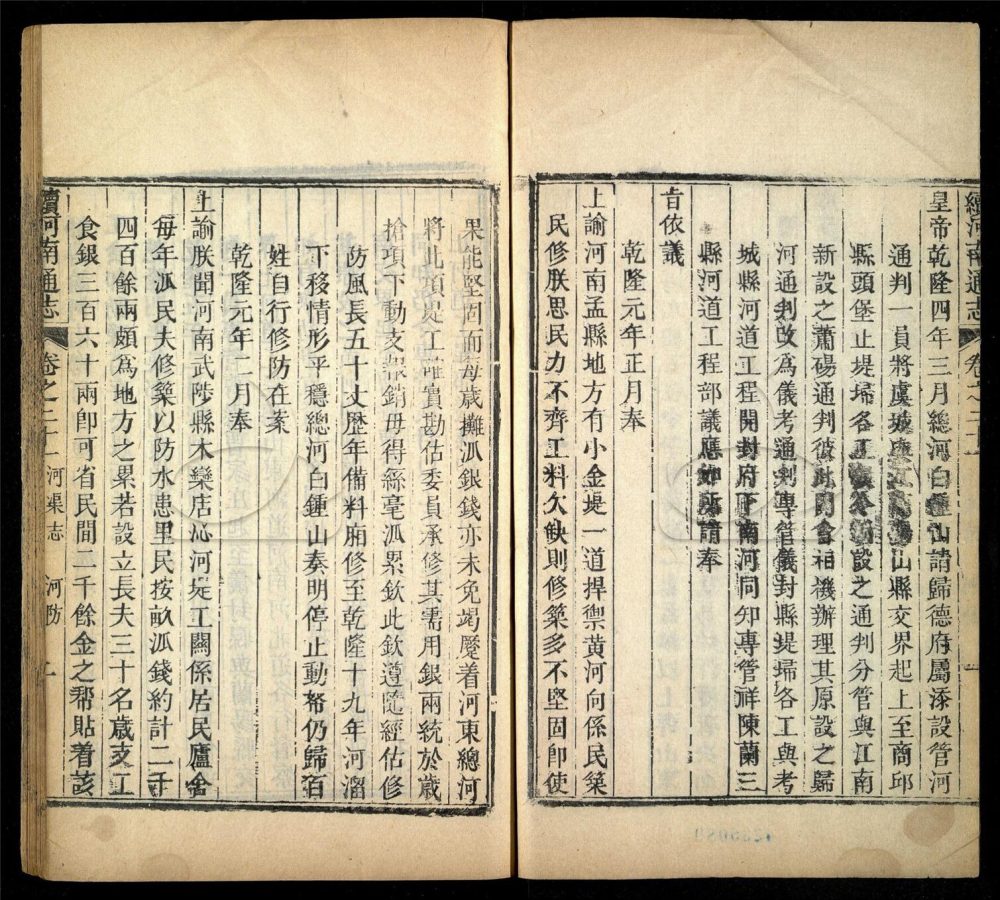 續河南通志 卷之二十一
皇帝乾隆四年三月總河白鍾山請歸德府屬添設管河
通判一員將虞城 山縣交界起上至商邱
縣頭堡止堤埽各工 設之通判分管與江南
新設之蕭碭通判彼此 會相機辦理其原設之歸
河通判改為儀考通判專管儀封縣堤埽各工與考
城縣河道工程開封府下南河同知專管祥陳蘭三
縣河道工程部議應如所請奉
旨依議
乾隆元年正月奉
上諭河南孟縣地方有小金堤一道捍禦黃河向係民築
民修朕思民力不齊工料欠缺則修築多不堅固即使
果能堅固而每歲攤派銀錢亦未免竭蹷着河東總河
將此項堤工確實勘估委員承修其需用銀兩統於歲
搶項下動支報銷毋得絲毫派累欽此欽遵隨經估修
防風長五十丈歷年備料廂修至乾隆十九年河溜
下移情形平穩總河白鍾山奏明停止動帑仍歸百
姓自行修防在案
乾隆元年二月奉
上諭朕聞河南武陟縣木欒店沁河堤工關係居民廬舍
每年派民夫修築以防水患里民按畝派錢約計二千
四百餘兩頗為地方之累若設立長夫三十名歲支工
食銀三百六十兩即可省民間二千餘金之幫貼着該
續河南通志 卷之二十一 河渠志 河防 一